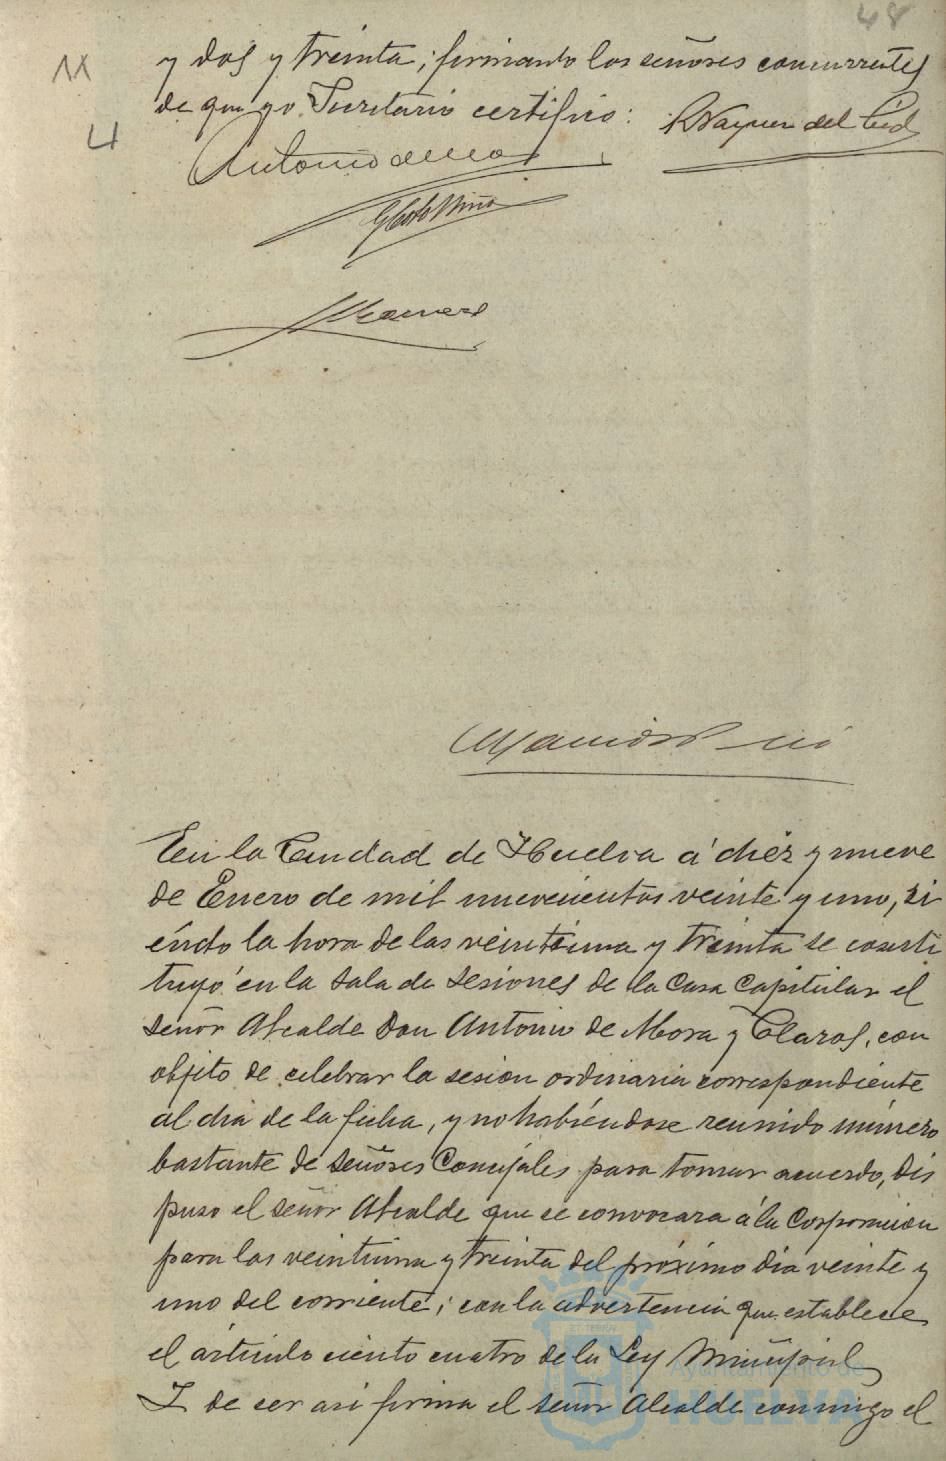 48
11
y dos y treinta; firmando los señores concurrentes
4
de que yo Secretario certifico:
Antonio de Mora
En la Ciudad de Huelva á diéz y nueve
de Enero de mil nuevecientos veinte y uno, si
éndo la hora de las veintiuna y treinta se consti
tuyó en la sala de sesiones de la Casa Capitular el
señor Alcalde Don Antonio de Mora y Claros, con
objeto de celebrar la sesion ordinaria correspondiente
al dia de la fecha, y no habiéndose reunido número
bastante de señores Concejales para tomar acuerdo, dis
puso el señor Alcalde que se convocara á la Corporacion
para las veintiuna y treinta del próximo dia veinte y
uno del corriente; con la advertencia que establece
el artículo ciento cuatro de la Ley Municipal
Y de ser asi firma el señor Alcalde conmigo el
Ayuntamiento de
HUELVA